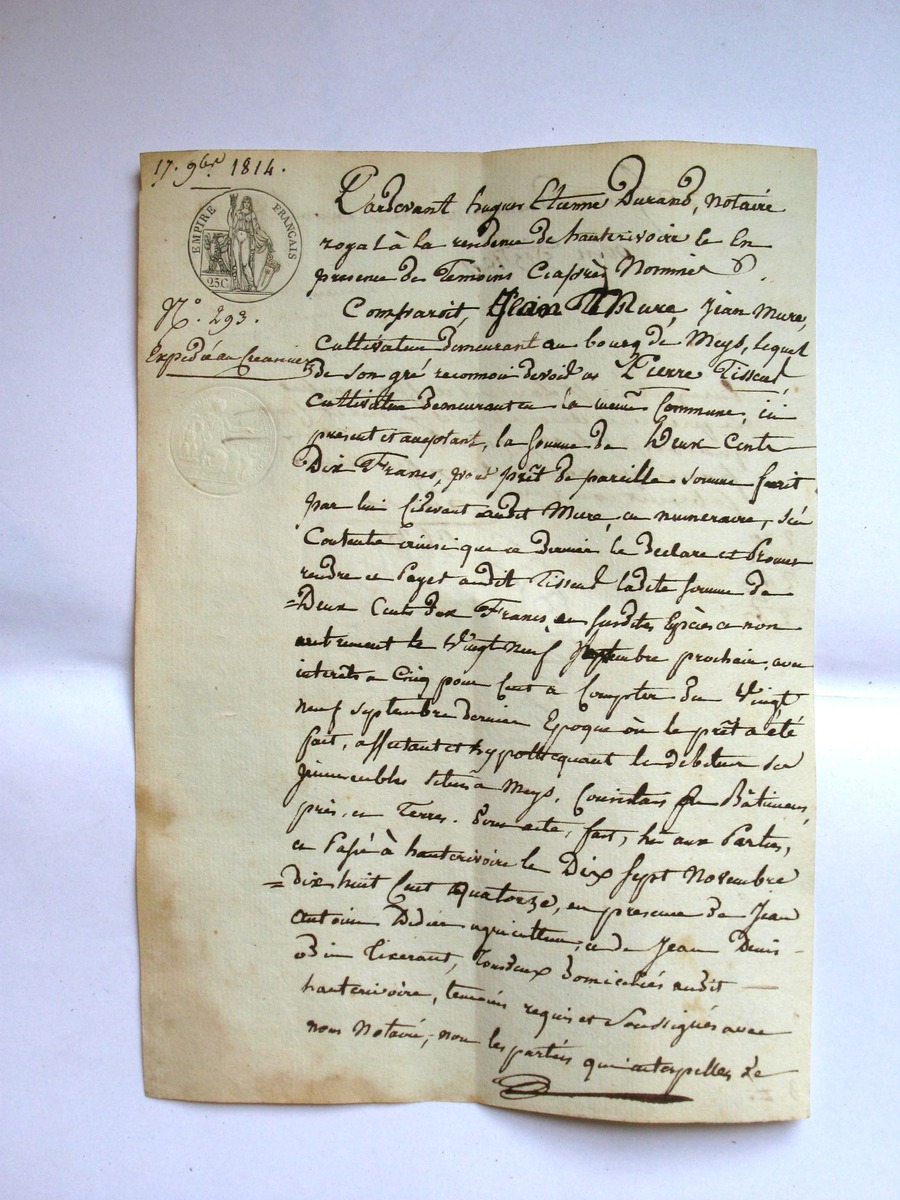 17. 9bre 1814.
EMPIRE FRANÇAIS
25C
N°. 293.
Expédié au Creancier
Pardevant hugues Etienne Durand, Notaire
royal à la residence de hauterivoire le En
presence de Temoins Ciaprès Nommés
Comparoit, Jean Mure,
Cultivateur demeurant au bourg de Meys, lequel
de son gré reconnoit devoir a Pierre Tisseur
Cultivateur demeurant en la meme Commune, ici
present et acceptant, la somme de Deux Cents
Dix Francs, pour prêt de pareille Somme fait
par lui Cidevant audit Mure, en numeraire,
Contente ainsi que ce dernier le declare et Promet
rendre et Payer audit Tisseur ladite somme de
=Deux Cents dix Francs, en susdites Espèces et non
autrement le Vingt Neuf Septembre prochain, avec
interêts a Cinq pour Cent a Compter du Vingt
Neuf septembre dernier Epoque où le prêt a été
fait, affectant et hypothequant le debiteur ses
immeubles situés a Meys, Consistans en Bâtimens,
près, et Terres. Dont acte, fait, lu aux Parties,
et Passé à hauterivoire le Dix sept Novembre
=dix huit Cent quatorze, en presence de Jean
antoine Didier agriculteur, et de Jean Denis
odin Tixerant, Tous deux domiciliés audit
hauterivoire, temoins requis et Soussignés avec
nous Notaire, non les parties qui interpellées de